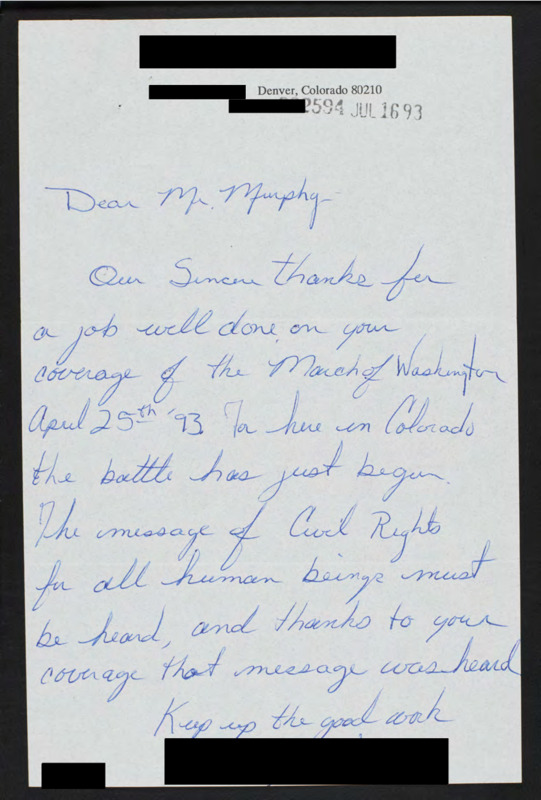 Denver, Colorado 80210
2594 JUL 16 93
Dear Mr. Murphy-
Our Sincere thanks for
a job well done on your
coverage of the March of Washington
April 25th '93. For here in Colorado
the battle has just begun.
The message of Civil Rights
for all human beings must
be heard, and thanks to your
coverage that message was heard
Keep up the good work